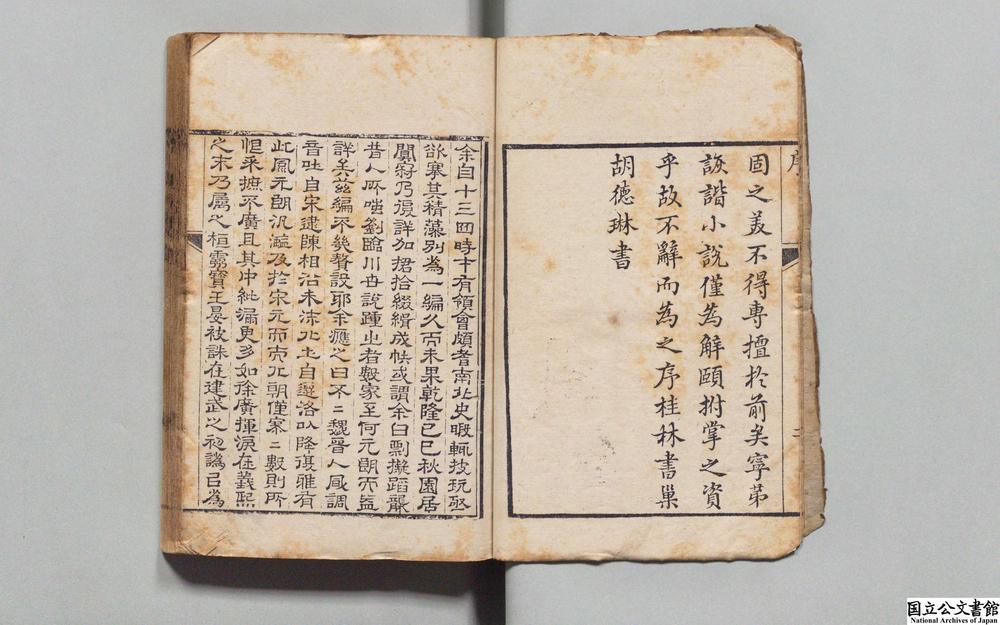 序
固之美不得專擅於前矣寧第
詼諧小說僅為解頤拊掌之資
乎故不辭而為之序桂林書巢
胡德琳書
二
余自十三四時十有領會頗耆南北史暇輒披玩亟
欲搴其精藻別為一編久而未果乾隆己巳秋園居
闃寂乃復詳加捃拾綴緝成帙或謂余曰剽擬蹈襲
昔人所嗤劉臨川世說踵止者數家至何元朗而益
詳矣茲編不幾贅設耶余應之曰不二魏晉人風調
音吐自宋逮陳相沿未沫北土自遷洛以降復雅有
此風元朗汎濫及於宋元而南北朝僅寥二數則所
恒采摭不廣且其中紕漏更多如徐廣揮淚在義熙
之末乃屬之桓靈寶王晏被誅在建武之初譌已為
国立公文書館
National Archives of Japan